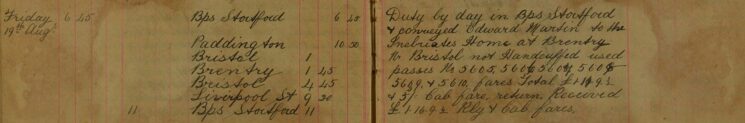 Friday 6 45 Bps Stortford 6 45
19th Aug
Paddington 10 30
Bristol 1
Brentry 1 45
Bristol 4 45
Liverpool St 9 20
11 Bps Stortford 11
Duty by day in Bps Stortford
& conveyed Edward Martin to the
Inebriates Home at Brentry
Nr Bristol not Handcuffed used
passes No 5605, 5606 5607 5608
5609, & 5610, fares Total £1-16-9½
& 5/- Cab fare, return. Received
£1-16-9½ Rly & Cab fares.